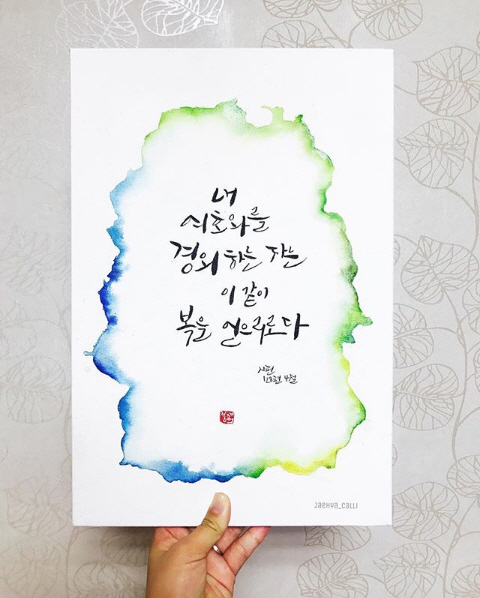 내
여호와를
경외 하는 자는
이 같이
복을 얻으리로다
시편
128편 4절
JAEHYA_CALLI